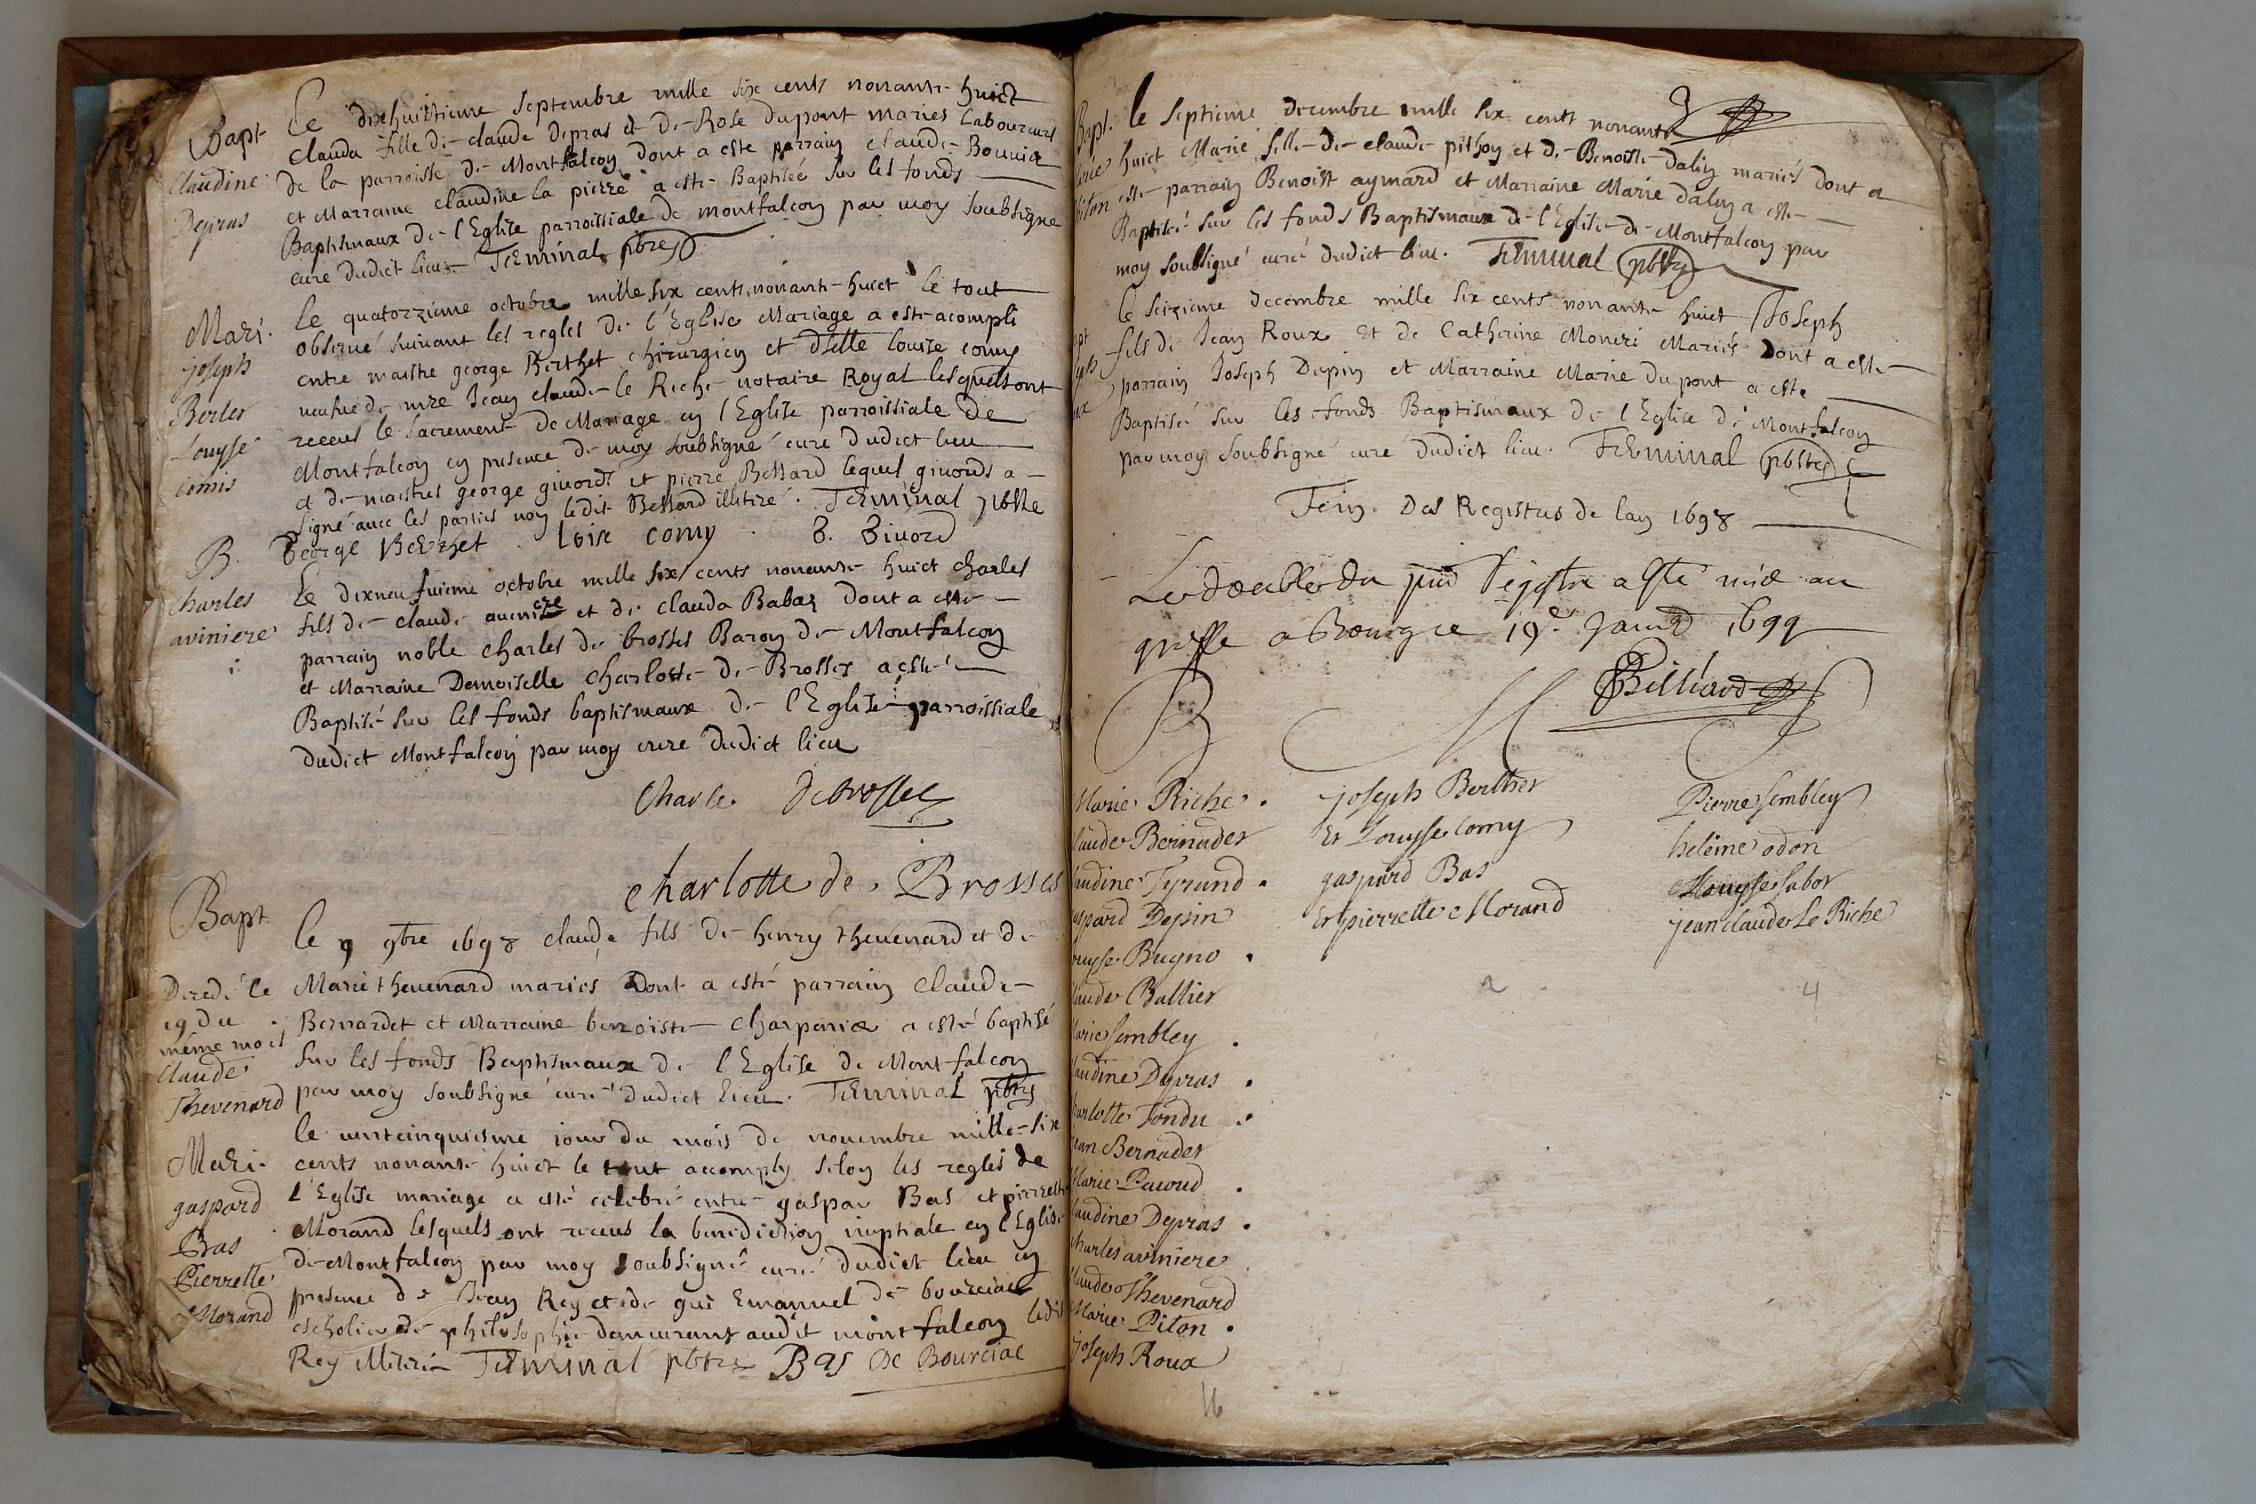 Bapt
Claudine
Depras
Le dixhuittieme septembre mille six cents nonante huict
clauda fille de claude depras et de Rose dupont mariés Laboureurs
de la parroisse de Montfalcon dont a este parrain claude Bouuier
et Marraine claudine la pierre a este Baptisée sur les fonds
Baptismaux de l'Eglise parroissiale de montfalcon par moy soubsigné
curé dudict lieu Terminal pbre
Mari.
joseph
Berter
Louyse
comis
le quatorzieme octobre mille six cents nonante huict le tout
obserué suiuant les regles de l'Eglise Mariage a este acompli
entre maistre george Berthet chirurgien et dlle louise comy
de mre Jean claude le Riche notaire Royal lesquels ont
receus le sacrement de Mariage en l'Eglise parroissiale de
Montfalcon en presence de moy soubsigné curé dudict lieu
et de maistres george giuord et pierre Bessard lequel giuord a
signé auec les parties non ledit Bessard illitiré. Terminal pbre
George Berthet . loise comy . B. Biuord
B.
charles
aviniere
Le dixneufuieme octobre mille six cents nonante huict charles
fils de claude et de clauda Babaz dont a esté
parrain noble charles de brosses Baron de Montfalcon
et Marraine Demoiselle charlotte de Brosses a esté
Baptisé sur les fonds baptismaux de l'Eglise parroissiale
dudict Montfalcon par moy curé dudict lieu
Charle Debrosses
charlotte de Brosses
Bapt
le 9 9bre 1698 claude fils de henry theuenard et de
Decedé le
19 du
même mois
Claude
Thevenard
Marie theuenard mariés dont a esté parrain claude
Bernardet et Marraine benoiste charpenie a esté baptisé
sur les fonds Baptismaux de l'Eglise de Montfalcon
par moy soubsigné curé dudict lieu. Terminal pbre
Mari.
gaspard
Bas
Pierrette
Morand
le uintcinquiesme iour du mois de nouembre mille six
cents nonante huict le tout accomply selon les regles de
l'Eglise mariage a esté celebré entre gaspar Bas et pierrette
Morand lesquels ont receus la benediction nuptiale en l'Eglise
de Montfalcon par moy soubsigné curé dudict lieu en
presence de Jean Rey et de gui Emanuel de bourciac
escholier de philosophie demeurant audit montfalcon ledit
Rey illitiré Terminal pbtre Bas De Bourciac
Bapt. le septieme decembre mille six cents nonante
huict Marie fille de claude pithon et de Benoiste dalin mariés dont a
esté parrain Benoist aymard et Marraine Marie dalin a esté
Baptisé sur les fonds Baptismaux de l'Eglise de Montfalcon par
moy soubsigné curé dudict lieu. Terminal pbtre
le seizieme decembre mille six cents nonante huict Joseph
fils de Jean Roux et de Catherine Moneri Mariés dont a esté
parrain Joseph Dupin et Marraine Marie dupont a esté
Baptisé sur les fonds Baptismaux de l'Eglise de Montfalcon
par moy soubsigné curé dudict lieu. Terminal pbtre
Fein Des Registres de lan 1698
Le double du registre a este mis au
greffe a Bourg ce 19e 1699
Billiard
B
M
S
Marie Riche .
Claude Bernadet
Claudine Tyrand .
gaspard Depin
Louyse Bugno .
Claude Ballier
Marie sembley .
Claudine Depras .
Charlotte Tondu .
Jean Bernadet
Marie Pacoud .
Claudine Depras .
Charles aviniere
Claude Thevenard
Marie Piton .
joseph Roux
16
joseph Berthet
Et Louyse Comy
gaspard Bas
Et pierrette Morand
2
Pierre sembley
heleine odon
Louyse sabot
jean claude Le Riche
4